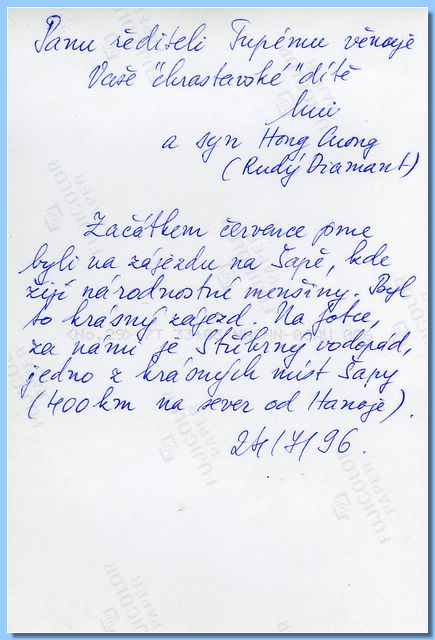 Panu řediteli Tupému věnuje
Vaše "chrastavské" dítě
a syn Hong Cuong
(Rudý Diamant)
Začátkem července jsme
byli na zájezdu na Šapě, kde
žijí národnostní menšiny. Byl
to krásný zájezd. Na fotce,
za námi je Stříbrný vodopád,
jedno z krásných míst Šapy
(400 km na sever od Hanoje).
24/7/96.
FUJICOLOR
PAPER
FUJICOLOR
PAPER
FUJICOLOR
PAPER
FUJICOLOR
PAPER